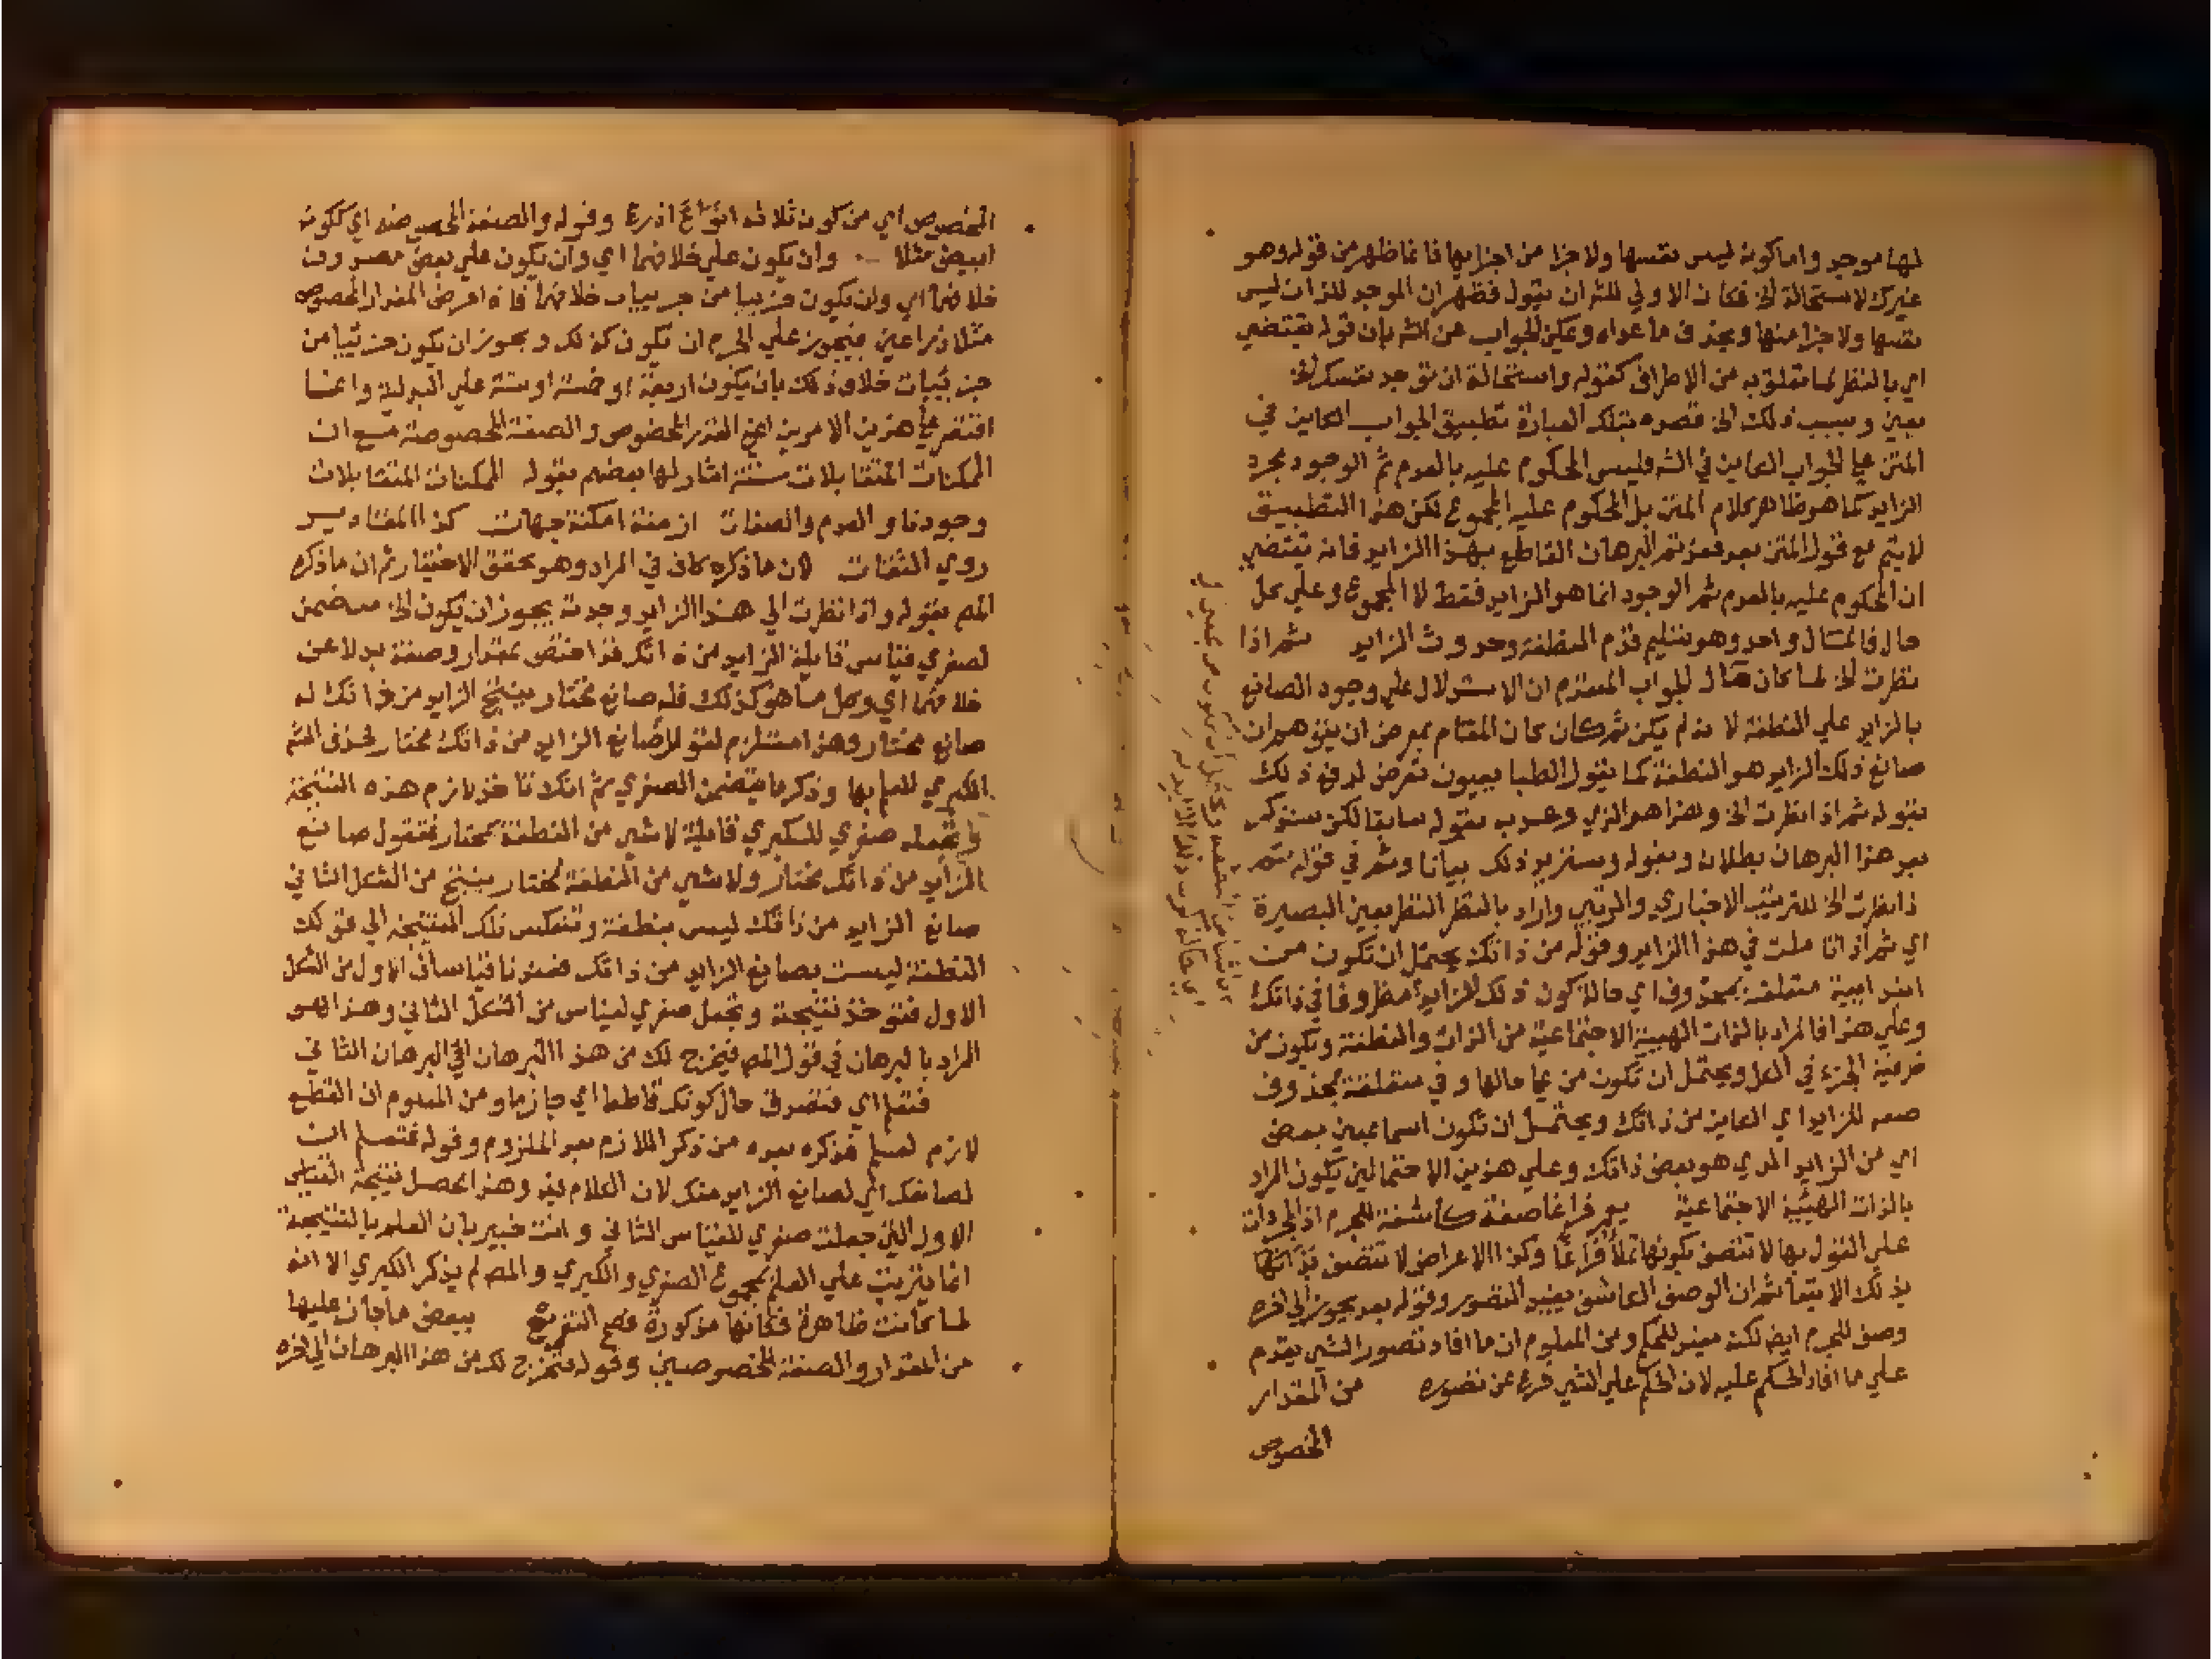 لها موجد واما كونه ليس نفسها ولا جزا من اجزايها فانما ظهر من قوله وهو
غيرك لاستحالة الخ فكان الاولي للش ان يقول فظهر ان الموجد للذات ليس
نفسها ولا جزا منها ويحذف ما عداه ويمكن الجواب عن الش بان قوله يقتضي
اي بالنظر لما تعلق به من الاطراف كقوله واستحالة ان توجد نفسك الخ
يعين وسبب ذلك الخ قصره بتلك العبارة تطبيق الجواب الكاين في
المتن علي الجواب الكاين في الش وليس المحكوم عليه بالعدم ثم الوجود مجرد
الزايد كما هو ظاهر كلام المتن بل المحكوم عليه المجموع لكن هذا التطبيق
لا يتم مع قول المتن بعد فعز ثم البرهان القاطع بهذا الزايد فانه يقتضي
ان المحكوم عليه بالعدم ثم الوجود انما هو الزايد فقط لا المجموع وعلي كل
حال فالمئال واحد وهو تسليم قدم النطفة وحدوث الزايد ثم اذا
نظرت الخ لما كان مئال الجواب المستلزم ان الاستدلال علي وجود الصانع
بالزايد علي النطفة لا ندلم يكن ثم كان كان المقام بمعرض ان يتوهم ان
صانع ذلك الزايد هو النطفة كما يقول الطبايعيون تعرض لدفع ذلك
بقوله ثم اذا نظرت الخ وهذا هو الذي وعد به بقوله سابقا لكن سنذكر
بعد هذا البرهان بطلان وبقوله وسنزيد ذلك بيانا وثم في قوله ثم
اذا نظرت الخ للترتيب الاخباري والرتبي واراد بالنظر النظر بعين البصيرة
اي ثم اذا تاملت في هذا الزايد وقوله من ذاتك يحتمل ان تكون من
ابتدايية متعلقة بمحذوف اي حالة كون ذلك الزايد مظروفا في ذاتك
وعلي هذا فالمراد بالذات الهيية الاجتماعية من الذات والنطفة وتكون من
ظرفية الجزء في الكل ويحتمل ان تكون من علي حالها وفي متعلقة بمحذوف
صفة للزايد اي الكاين من ذاتك ويحتمل ان تكون اسما بمعني بعض
اي من الزايد الذي هو بعض ذاتك وعلي هذين الاحتمالين يكون المراد
بالذات الهيئية الاجتماعية يعمر فراغا صفة كاشفة للجرم اذ المجردات
علي القول بها لا تتصف بكونها تملأ فراغا وكذا الاعراض لا تتصف بذاتها
بذلك الا تبعا ثم ان الوصف الكاشف يفيد التصور وقوله بعد يجوز الي اخره
وصف للجرم ايض لكنه مفيد للحكم ومن المعلوم ان ما افاد تصور الشي يقدم
علي ما افاد الحكم عليه لان الحكم علي الشي فرع عن تصوره من المقدار
المخصوص
المخصوص اي من كون ثلاثة اذرع وقوله والصفة المخصوصة اي ككونه
ابيض مثلا وان يكون علي خلافهما اي وان يكون علي بعض مصدوق
خلافهما اي وان يكون جزييا من جزييات خلافهما فاذا فرض المقدار المخصوص
مثلا ذراعين فيجوز علي الجرم ان يكون كذلك ويجوز ان يكون جزئيا من
جزئيات خلاف ذلك بان يكون اربعة او خمسة او ستة علي البدلية وانما
اقتصر علي هذين الامرين اعني المقدار المخصوص والصفة المخصوصة مع ان
الممكنات المتقابلات ستة اشار لها بعضهم بقوله الممكنات المتقابلات
وجودنا والعدم والصفات ازمنة امكنة جهات كذا المقادير
روي الثقات لان ما ذكره كاف في المراد وهو تحقق الاختيار ثم ان ما ذكره
المص بقوله واذا نظرت الي هذا الزايد وجدته يجوز ان يكون الخ متضمن
لصغري قياس قايلة الزايد من ذاتك قد اختص بمقدار وصفة بدلا عن
خلافهما اي وكل ما هو كذلك فله صانع مختار ينتج الزايد من ذاتك له
صانع مختار وهذا مستلزم لقولنا صانع الزايد من ذاتك مختار فحذف الش
الكبري للعلم بها وذكر ما يتضمن الصغري ثم انك تاخذ لازم هذه النتيجة
وتجعله صغري للكبري قايلة لا شي من النطفة بمختار فتقول صانع
الزايد من ذاتك مختار ولا شي من النطفة بمختار ينتج من الشكل الثاني
صانع الزايد من ذاتك ليس بنطفة وتنعكس تلك النتيجة الي قولك
النطفة ليست بصانع الزايد من ذاتك فعندنا قياسان الاول من الشكل
الاول فتوخذ نتيجته وتجعل صغري لقياس من الشكل الثاني وهذا هو
المراد بالبرهان في قول المص فيخرج لك من هذا البرهان اي البرهان الثاني
فتعلم اي فتصدق حال كونك قاطعا اي جازما ومن المعلوم ان القطع
لازم للعلم فذكره بعده من ذكر اللازم بعد الملزوم وقوله فتعلم ان
لصانعك اي لصانع الزايد منك لان الكلام فيه وهذا محصل نتيجة القياس
الاول التي جعلت صغري للقياس الثاني وانت خبير بان العلم بالنتيجة
انما يترتب علي العلم بمجموع الصغري والكبري والمص لم يذكر الكبري الا انه
لما كانت ظاهرة فكانها مذكورة فصح التفريع ببعض ما جاز عليها
من المقدار والصفة المخصوصين وقوله فيخرج لك من هذا البرهان الي اخره